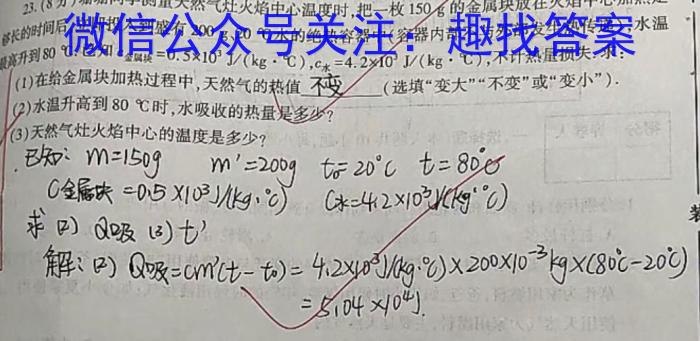 23.(8分) 测量天然气灶火焰中心温度时,把一枚150 g的金属块放在火焰中心加热足
够长的时间后
微信公众号关注：趣找答案
200 g、20 ℃水的绝热容器中(容器内
水温
最高升到80 ℃。已知 =0.5×10³ J/(kg·℃),c水=4.2×10³ J/(kg·℃),不计热量损失.求:
(1)在给金属块加热过程中,天然气的热值 不变 (选填“变大”“不变”或“变小”).
(2)水温升高到80 ℃时,水吸收的热量是多少?
(3)天然气灶火焰中心的温度是多少?
已知: m=150g m'=200g t₀=20℃ t=80℃
C金属块=0.5×10³J/(kg·℃) C水=4.2×10³J/(kg·℃)
求 (2) Q吸 (3) t'
解: (2) Q吸=cm'(t-t₀)=4.2×10³J/(kg·℃)×200×10⁻³kg×(80℃-20℃)
=5.04×10⁴J.